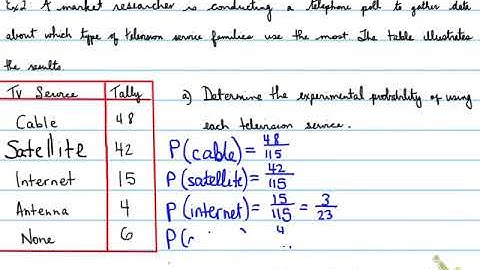 Ex2: A market researcher is conducting a telephone poll to gather data
about which type of television service families use the most. The table illustrates
the results.
TV Service Tally
Cable 48
Satellite 42
Internet 15
Antenna 4
None 6
a) Determine the experimental probability of using
each television service.
P(cable) = 48/115
P(satellite) = 42/115
P(internet) = 15/115 = 3/23
P( 4